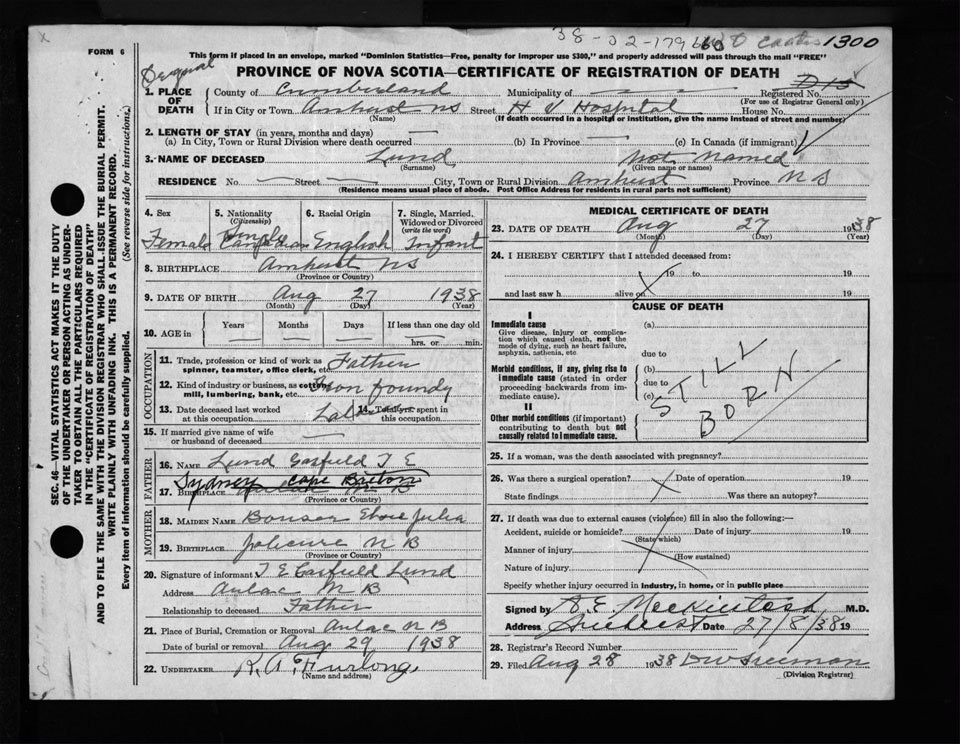 38-02-179660 1300
FORM 6
This form if placed in an envelope, marked "Dominion Statistics—Free, penalty for improper use $300," and properly addressed will pass through the mail "FREE"
PROVINCE OF NOVA SCOTIA—CERTIFICATE OF REGISTRATION OF DEATH
1. PLACE OF DEATH County of Cumberland Municipality of Registered No.
(For use of Registrar General only)
If in City or Town Amherst NS Street H V Hospital House No.
(Name) (If death occurred in a hospital or institution, give the name instead of street and number)
2. LENGTH OF STAY (in years, months and days)
(a) In City, Town or Rural Division where death occurred (b) In Province (c) In Canada (if immigrant)
3. NAME OF DECEASED Lund Not Named
(Surname) (Given name or names)
RESIDENCE No. Street City, Town or Rural Division Amherst Province NS
(Residence means usual place of abode. Post Office Address for residents in rural parts not sufficient)
4. Sex 5. Nationality (Citizenship) 6. Racial Origin 7. Single, Married, Widowed or Divorced (write the word)
Female Canadian English Infant
8. BIRTHPLACE Amherst NS
(Province or Country)
9. DATE OF BIRTH Aug 27 1938
(Month) (Day) (Year)
10. AGE in Years Months Days If less than one day old
hrs. or min.
OCCUPATION
11. Trade, profession or kind of work as spinner, teamster, office clerk, etc. Father
12. Kind of industry or business, as cotton mill, lumbering, bank, etc. Iron foundy
13. Date deceased last worked at this occupation 14. Total yrs. spent in this occupation
15. If married give name of wife or husband of deceased
FATHER
16. NAME Lund Garfield T E
Sydney Cape Breton
17. BIRTHPLACE
(Province or Country)
MOTHER
18. MAIDEN NAME Bonser Julia
19. BIRTHPLACE Jolicure N B
(Province or Country)
20. Signature of informant T E Garfield Lund
Address Aulac N B
Relationship to deceased Father
21. Place of Burial, Cremation or Removal Aulac N B
Date of burial or removal Aug 29 1938
22. UNDERTAKER R. A. Furlong
(Name and address)
MEDICAL CERTIFICATE OF DEATH
23. DATE OF DEATH Aug 27 1938
(Month) (Day) (Year)
24. I HEREBY CERTIFY that I attended deceased from:
19 to 19
and last saw h alive on 19
CAUSE OF DEATH
I
Immediate cause
Give disease, injury or complication which caused death, not the mode of dying, such as heart failure, asphyxia, asthenia, etc
(a)
due to
Morbid conditions, if any, giving rise to immediate cause (stated in order proceeding backwards from immediate cause).
(b)
due to
(c)
STILL
BORN
II
Other morbid conditions (if important) contributing to death but not causally related to immediate cause.
25. If a woman, was the death associated with pregnancy?
26. Was there a surgical operation? Date of operation 19
State findings Was there an autopsy?
27. If death was due to external causes (violence) fill in also the following:—
Accident, suicide or homicide? Date of injury 19
(State which)
Manner of injury
(How sustained)
Nature of injury
Specify whether injury occurred in industry, in home, or in public place
Signed by A. E. Mackintosh M.D.
Address Amherst Date 27/8/38 19
28. Registrar's Record Number
29. Filed Aug 28 1938 D W Freeman
(Division Registrar)
SEC. 46—VITAL STATISTICS ACT MAKES IT THE DUTY OF THE UNDERTAKER OR PERSON ACTING AS UNDERTAKER TO OBTAIN ALL THE PARTICULARS REQUIRED IN THE "CERTIFICATE OF REGISTRATION OF DEATH" AND TO FILE THE SAME WITH THE DIVISION REGISTRAR WHO SHALL ISSUE THE BURIAL PERMIT.
WRITE PLAINLY WITH UNFADING INK. THIS IS A PERMANENT RECORD.
Every item of information should be carefully supplied. (See reverse side for instructions.)